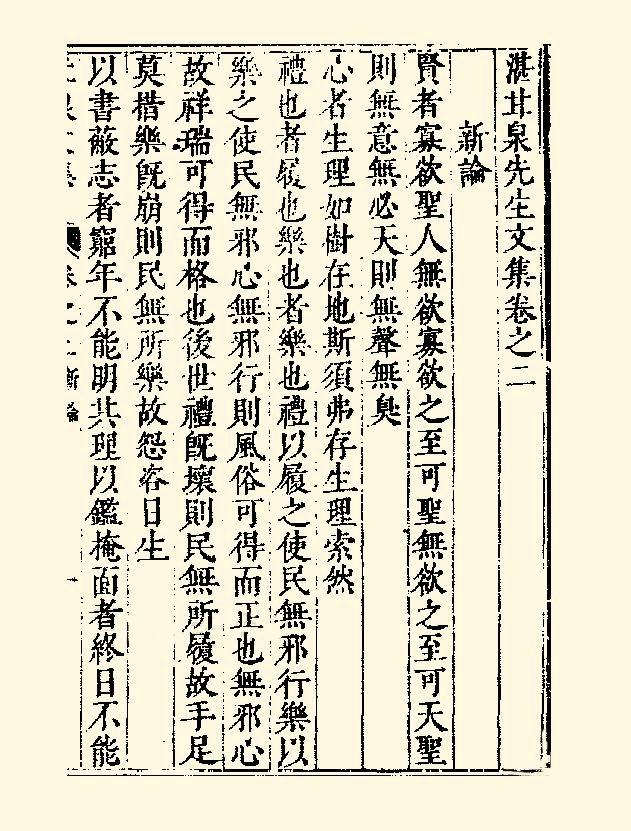 湛甘泉先生文集卷之二
新論
賢者寡欲聖人無欲寡欲之至可聖無欲之至可天聖
則無意無必天則無聲無臭
心者生理如樹在地斯須弗存生理索然
禮也者履也樂也者樂也禮以履之使民無邪行樂以
樂之使民無邪心無邪行則風俗可得而正也無邪心
故祥瑞可得而格也後世禮既壞則民無所履故手足
莫措樂既崩則民無所樂故怨咨日生
以書蔽志者窮年不能明其理以鑑掩面者終日不能